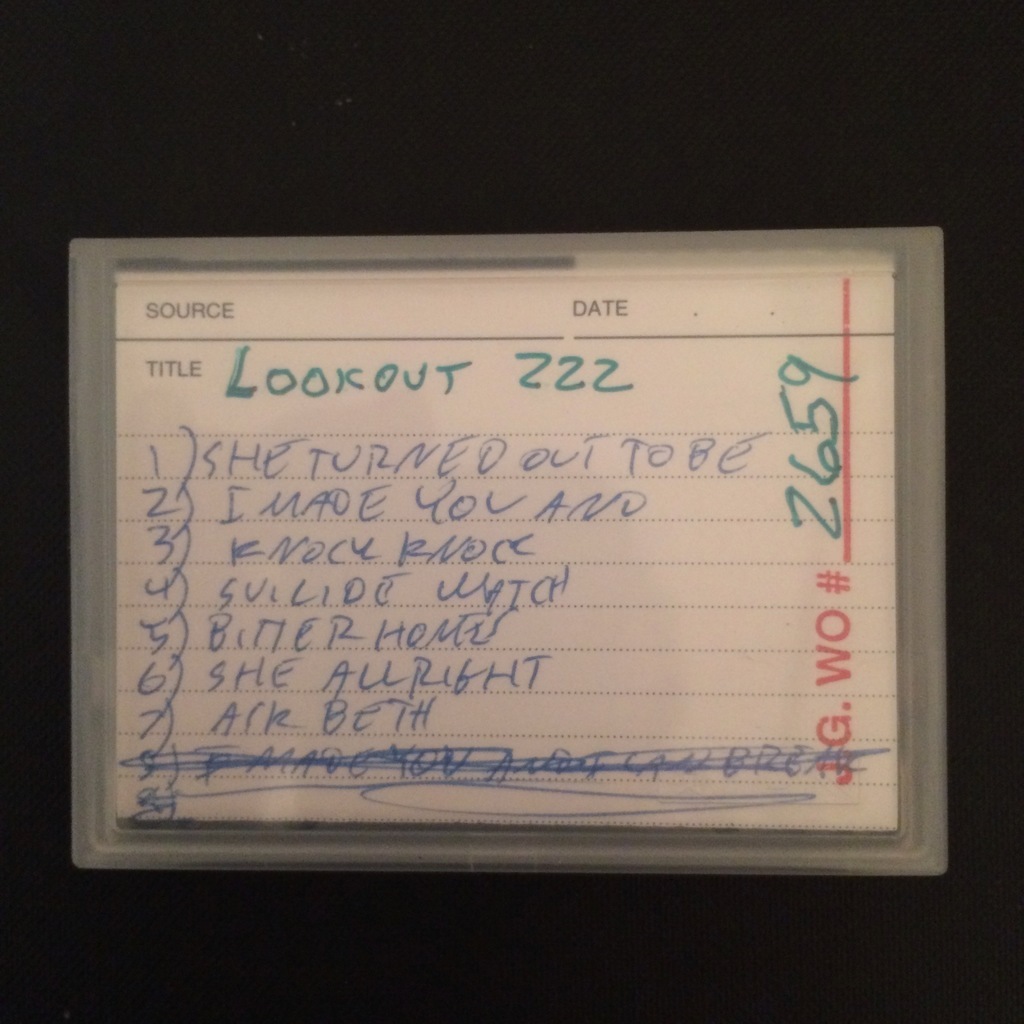 SOURCE
DATE . .
TITLE LOOKOUT 222
1) SHE TURNED OUT TO BE
2) I MADE YOU AND
3) KNOCK KNOCK
4) SUICIDE WATCH
5) BITTER HOMES
6) SHE ALLRIGHT
7) ASK BETH
8) I MADE YOU AND I CAN BREAK
J.G. WO # 2659